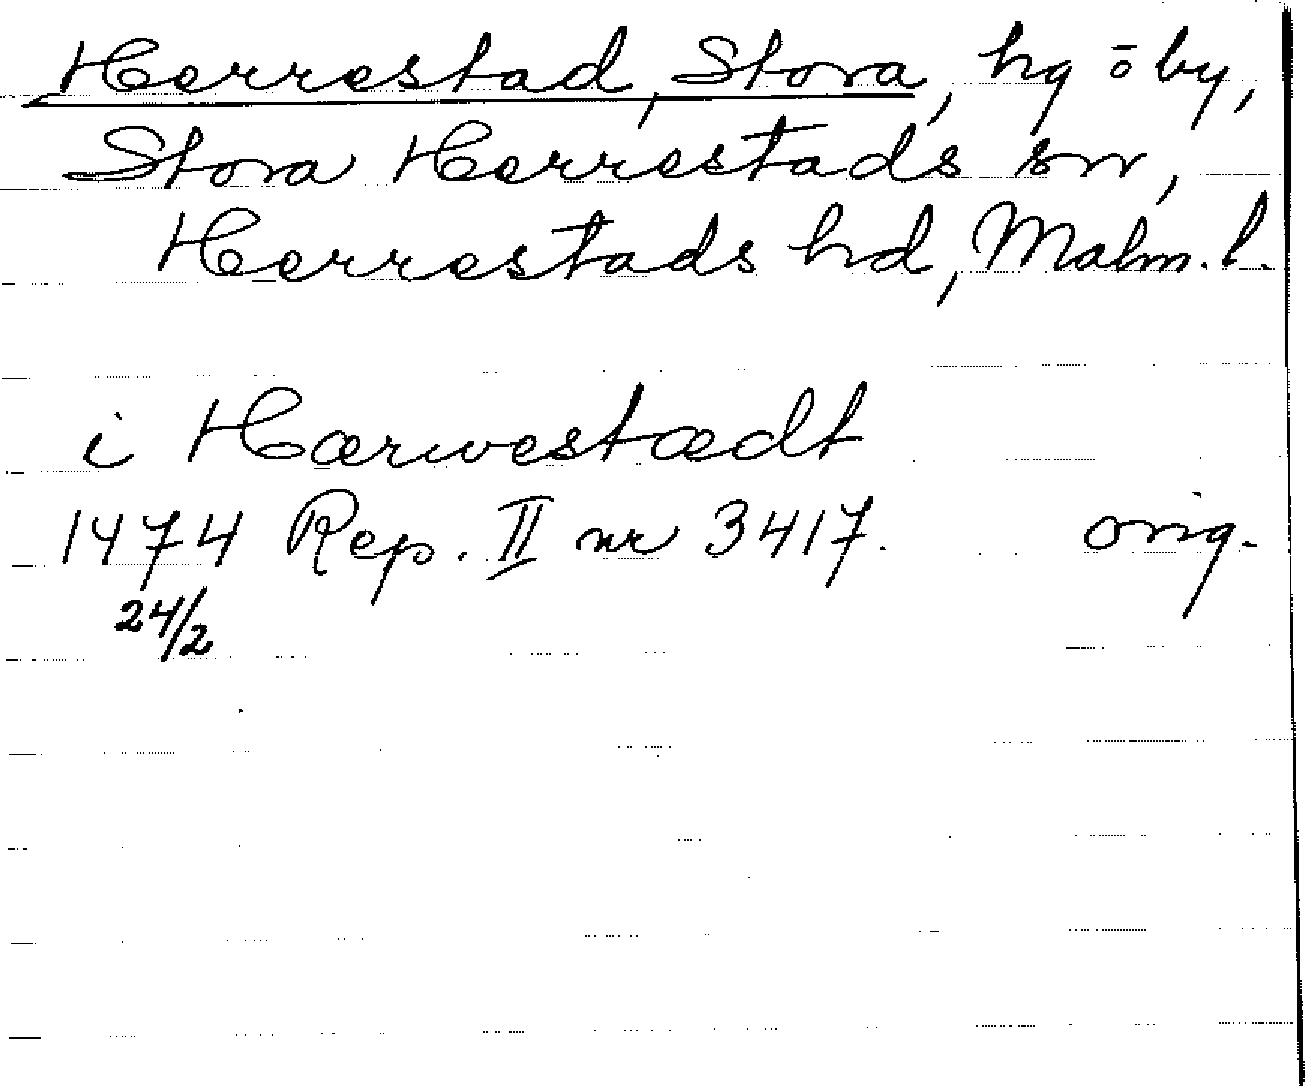 Herrestad, Stora, hg ō by,
Stora Herrestads sn,
Herrestads hd, Malm. l.
i Hærwestædt
1474 Rep. II nr 3417. orig.
24/2